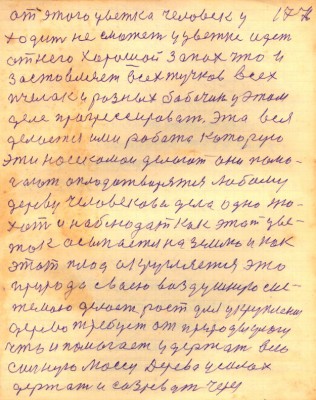 от этого цветка человек у 177
ходит не сможет у цветке идет
от него хороший запах это и
заставляет всех жучков всех
пчелак и разных бабочик у этом
деле прогрессироват. Эта вся
делается ими работа которую
эти насекомаи делают они помо-
гают оплодотворятся любому
дереву человекова дела одно хо-
хот и наблюдат как этот цве-
ток асыпается на землю и как
этот плод округляется это
природа сваею воздушную сис-
темаю делает рост для укрепления
дерево требует от природы
что и помогает удержат всю
сильную массу Дерево усилах
держат и созреват чераз